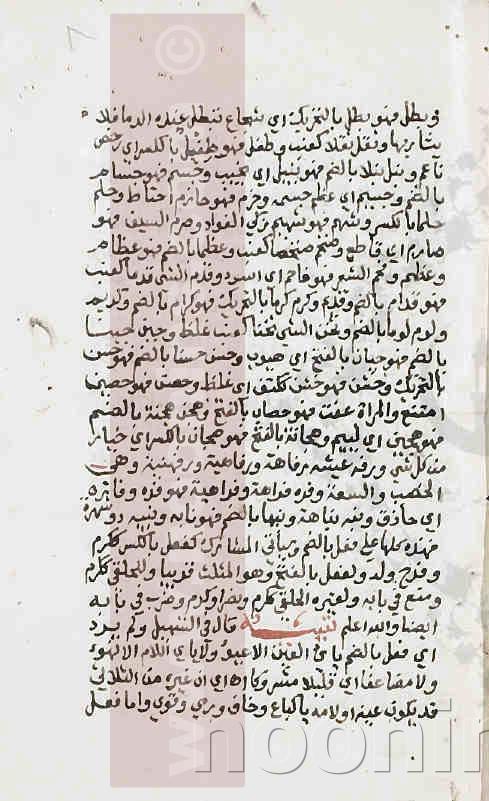 وبطل فهو بطل بالتحريك اي شجاع تبطل عنده الدما فلا
يثار بها وثقل ثقلا كعنب وطفل فهو طفل بالكسر اي رخص
ناعم ونبل نبلا بالضم فهو نبيل اي نجيب وجسم فهو جسام
بالضم وجسيم اي عظم جسمه وحزم فهو حازم احتاط وحلم
حلما بالكسر وشهم فهو شهيم ذكي الفؤاد وصرم السيف فهو
صارم اي قاطع وضخم ضخما كعنب وعظما بالضم فهو عظام
وعظيم وفحم الشعر فهو فاحم اي اسود وقدم الشي قدما كعنب
فهو قدام بالضم وقديم وكرم كرما بالتحريك فهو كرام بالضم وكريم
ولوم لوما بالضم وثخن الشي ثخنا كعنب غلظ وجبن جبنا
بالضم فهو جبان بالفتح اي هيوب وحسن حسنا بالضم فهو حسن
بالتحريك وخشن فهو خشن ككتف اي غلظ وحصن فهو حصين
امتنع والمراة عفت فهو حصان بالفتح وهجن هجنة بالضم
فهو هجين اي لييم وهجانة بالفتح فهو هجان بالكسر اي خيار
من كل شي ورفه عيشه رفاهة ورفاهية ورفهنية وهي
الخصب والسعة وفره فراهة وفراهية فهو فره وفاره
اي حاذق ونبه نباهة ونبها بالضم فهو نابه ونبيه ذو شهرة
فهذه كلها على فعل بالضم وياتي المشارك كفعل بالكسر ككرم
وفرح ولد ولفعل بالفتح وهو المثلث قريبا وللحلقي ككرم
ومنع في بابه ولغير الحلقي ككرم ونصر او كرم وضرب في بابه
ايضا والله اعلم تنبيه قال في التسهيل ولم يرد
اي فعل بالضم يائي العين الا هيو ولا يائي اللام الا نهو
ولا مضاعفا اي قليلا مشروكا اه اي ان غيره من الثلاثي
قد يكون عينه او لامه يا كباع وخاف ورمي وقوي واما فعل
noorin